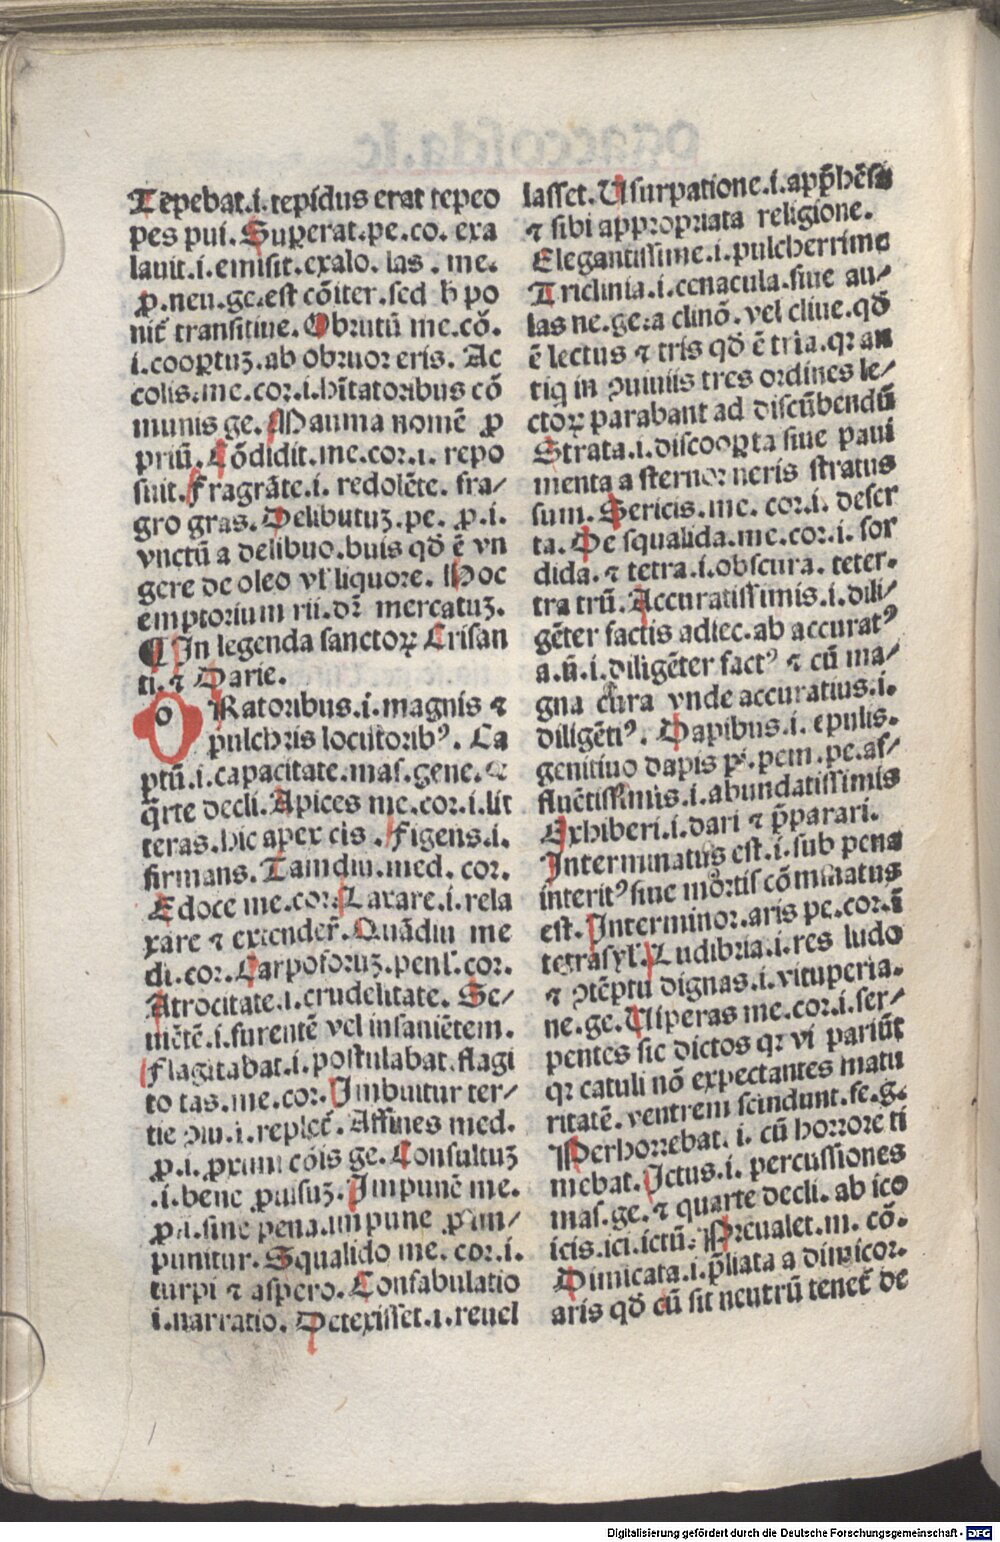 Tepebat.i.tepidus erat tepeo
pes pui. Suꝑerat.pe.co. exa
lauit.i.emisit.exalo. las . me.
ꝓ.neu.ge.est cōiter.sed h̄ po
nit̄ transitiue. Obrutū me.cō.
i.cooꝑtuꝫ.ab obruor eris. Ac
colis.me.cor.i.hītatoribus cō
munis ge. Manma nomē ꝓ
priū. Cōdidit.me.cor.i. repo
suit. Fragrāte.i. redolēte. fra⸗
gro gras. Delibutuꝫ.pe. ꝓ.i.
vnctū a delibuo.buis qđ ē vn
gere de oleo vl̓ liquore. Hoc
emptorium rii.dr̄ mercatuꝫ.
¶ In legenda sanctoꝝ Crisan
ti. ⁊ Darie.
ORatoribus.i.magnis ⁊
pulchris locutoribꝰ. Ca
ptū.i.capacitate.mas.gene. ⁊
q̄rte decli. Apices me.cor.i.lit
teras.hic apex cis . Figens.i.
firmans. Tamdiu.med. cor.
Edoce me.cor. Laxare.i.rela
xare ⁊ extender̄. Quādiu me
di.cor. Carpoforuꝫ.penl̓.cor.
Atrocitate.i.crudelitate. Se⸗
mētē.i.furentē vel insaniētem.
Flagitabat.i.postulabat.flagi
to tas.me.cor. Imbuitur ter⸗
tie ꝯiu.i.replet̄. Affines med.
ꝓ.i. ꝓximi cōis ge. Consultuꝫ
.i.bene ꝓuisuꝫ. Impunē me.
ꝓ.i.sine pena.impune ꝓ im⸗
punitur. Squalido me. cor.i.
turpi ⁊ aspero. Confabulatio
i.narratio. Detexisset.i.reuel
lasset. Usurpatione.i.app̄hēsa
⁊ sibi appropriata religione.
Elegantissime.i.pulcherrime
Triclinia.i.cenacula.siue au⸗
las ne.ge.a clinō. vel cliue.qđ
ē lectus ⁊ tris qđ ē tria.qꝛ an
tiq in ꝯuiuiis tres ordines le⸗
ctoꝝ parabant ad discūbendū
Strata.i.discooꝑta siue paui
menta a sternor neris stratus
sum. Sericis.me. cor.i. deser
ta. De squalida.me.cor.i. sor
dida. ⁊ tetra.i.obscura. teter.
tra trū. Accuratissimis.i.dili⸗
gēter factis adiec.ab accuratꝰ
a.ū.i.diligēter factꝰ ⁊ cū ma⸗
gna cura vnde accuratius.i.
diligētiꝰ. Dapibus.i. epulis.
genitiuo dapis pi.pem.pe.af⸗
fluētissimis.i.abundatissimis
Exhiberi.i.dari ⁊ p̄parari.
Interminatus est.i.sub pena
interitꝰ siue mortis cōminatus
est. Interminor.aris pe.cor.ī
tetrasyl̓. Ludibria.i.res ludo
⁊ ꝯtēptu dignas.i.vituperia.
ne.ge. Uiperas me.cor.i.ser⸗
pentes sic dictos qꝛ vi pariūt
qꝛ catuli nō expectantes matu
ritatē. ventrem scindunt.fe.g.
Perhorrebat. i. cū horrore ti
mebat. Ictus.i. percussiones
mas.ge. ⁊ quarte decli. ab ico
icis.ici.ictū. Preualet.m. cō.
Dimicata.i.p̄liata a dimicor.
aris qđ cū sit neutrū tenet̄ de
Digitalisierung gefördert durch die Deutsche Forschungsgemeinschaft - DFG